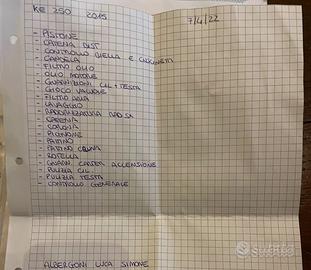 KE 250 2015 7/4/22
- PISTONE
- CATENA DIST.
- CONTROLLO BIELLA E CUSCINETTI
- CANDELA
- FILTRO OLIO
- OLIO MOTORE
- GUARNIZIONI CIL + TESTA
- GIOCO VALVOLE
- FILTRO ARIA
- LAVAGGIO
- RADDRIZZATURA RAD. SX
- CATENA
- CORONA
- PIGNONE
- PATTINO
- PATTINO
- ROTELLA
- GUARN. CARTER ACCENSIONE
- PULIZIA CIL.
- PULIZIA TESTA
- CONTROLLO GENERALE
ALBERGONI LUCA SIMONE
subito